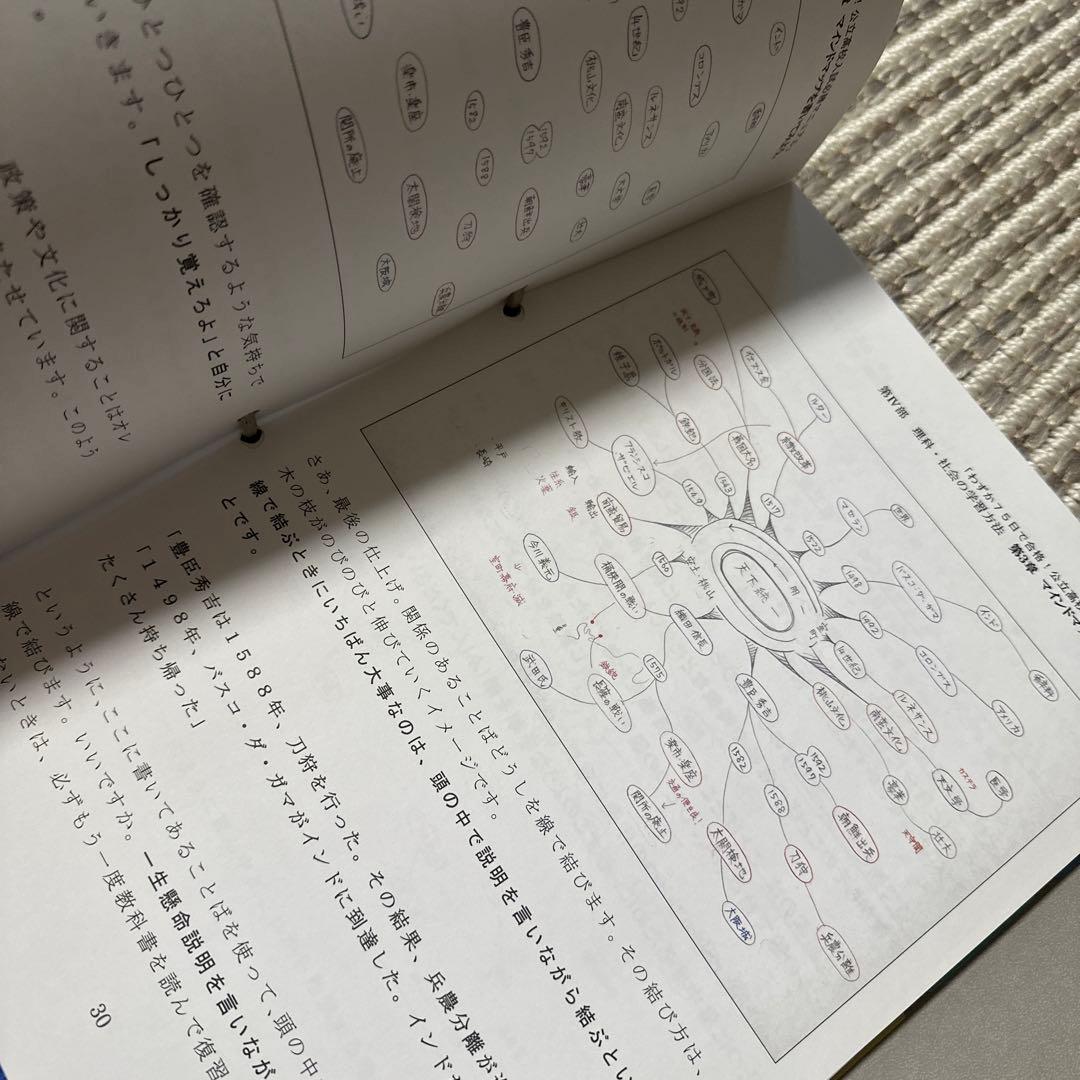 とつひとつを確認するような気持ちで
いきます。「しっかり覚えろよ」と自分に
政策や文化に関することはオレ
たせています。このよう
豊臣秀吉
14世紀
桃山文化
コロンブス
インド
楽市・楽座
1582
1592
1597
南蛮文化
ルネサンス
関所の廃止
1588
太閤検地
刀狩
朝鮮出兵
天文学
医学
壮大
大阪城
兵農分離
「わずか75日で合格!公立高
第Ⅳ部 理科・社会の学習方法 第3章 マインドマ
天下統一
安土・桃山
室町
明
1517
宗教改革
ルター
イエズス会
1543
戦国大名
分国法
鉄砲
ポルトガル
種子島
1549
フランシスコ・ザビエル
キリスト教
平戸
長崎
南蛮貿易
輸入
輸出
生糸
火薬
銀
1560
桶狭間の戦い
今川義元
室町幕府 滅
織田信長
1575
鉄砲
長篠の戦い
武田氏
楽市・楽座
交通の便を良く!
関所の廃止
豊臣秀吉
1582
太閤検地
大阪城
1588
刀狩
兵農分離
1592
1597
朝鮮出兵
桃山文化
南蛮文化
天守閣
壮大
カステラ
天文学
医学
14世紀
ルネサンス
1492
コロンブス
アメリカ
1498
バスコ・ダ・ガマ
インド
香辛料
1522
マゼラン
世界
さあ、最後の仕上げ。関係のあることばどうしを線で結びます。その結び方は、
木の枝がのびのびと伸びていくイメージです。
線で結ぶときにいちばん大事なのは、頭の中で説明を言いながら結ぶとい
とです。
「豊臣秀吉は1588年、刀狩を行った。その結果、兵農分離が
「1498年、バスコ・ダ・ガマがインドに到達した。インド
たくさん持ち帰った」
というように、ここに書いてあることばを使って、頭の中
線で結びます。いいですか。一生懸命説明を言いなが
ないときは、必ずもう一度教科書を読んで復習
30